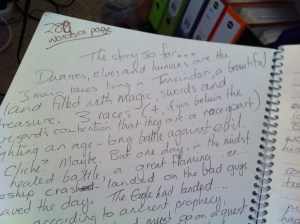 280
words a page
The story so far...
Dwarves, elves and humans are the
3 main races living in Tencindor, a beautiful
land filled with magic, swords and
treasure. 3 races (4, if you believe the
contention that they are a race apart)
fighting an age-long battle against evil.
Cliche? Maybe. But one day, in the midst
healed battle, a great flaming... er...
crash landed on the bad guys
saved the day. The Eagle had landed...
according to ancient prophecy,
I must go on a quest